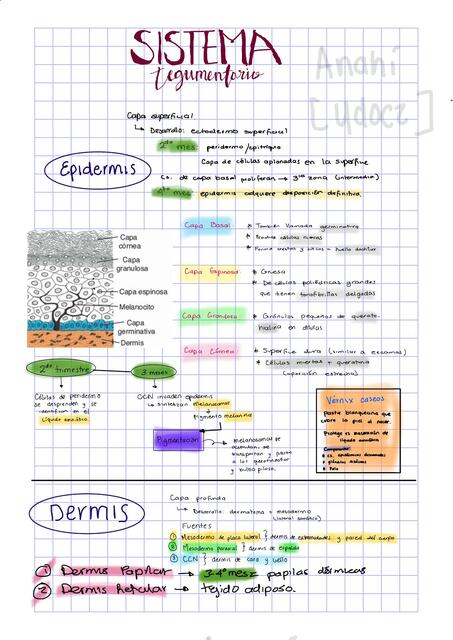 SISTEMA
tegumentario
Anahí
[Ydocz]
Capa superficial
↳ Desarrollo: ectodermo superficial
2do mes peridermo/epitriquio
Capa de células aplanadas en la superficie
Epidermis
Cs. de capa basal proliferan → 3ra zona (intermedia)
4to mes epidermis adquiere disposición definitiva.
Capa Basal
* También llamada germinativa
* Produce células nuevas
* Forma crestas y surcos = huella dactilar
Capa córnea
Capa granulosa
Capa espinosa
Melanocito
Capa germinativa
Dermis
Capa Espinosa
* Gruesa
* De células poliédricas grandes
que tienen tonofibrillas delgadas
Capa Granulosa
* Gránulos pequeños de querato-
hialina en células
Capa Córnea
* Superficie dura (similar a escamas)
* Células muertas + queratina
(aparición estrecha)
2do trimestre
3 meses
Células de peridermo
se desprenden y se
identifican en el
líquido amniótico
CCN invaden epidermis
↳ sintetizan melanosomas
↓
pigmento melanina
Pigmentación
melanosomas se
acumulan, se
transportan y pasan
a los queratinocitos
y bulbo piloso.
Vérnix caseosa
Pasta blanquecina que
cubre la piel al nacer.
Protege es maceración de
líquido amniótico
Composición:
Cs. epidérmicas descamadas
glándulas sebáceas
Pelo
Dermis
Capa profunda
↳ Desarrollo: dermatoma + mesodermo
(lateral somático)
Fuentes
① Mesodermo de placa lateral } dermis de extremidades y pared del cuerpo
② Mesodermo paraxial } dermis de espalda
③ CCN } dermis de cara y cuello
① Dermis Papilar → 3-4º mes: papilas dérmicas
② Dermis Reticular → tejido adiposo.